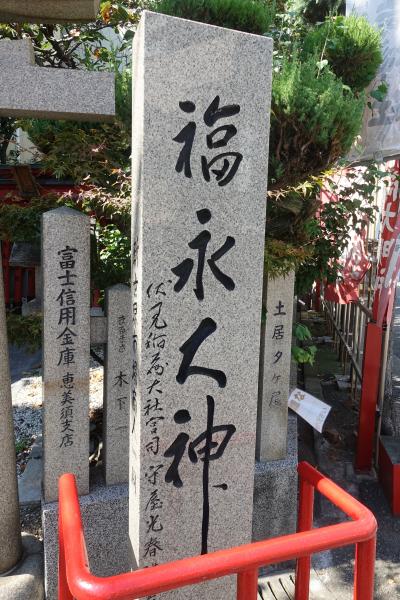 福永大神
伏見稲荷大社宮司守屋光春
富士信用金庫
恵美須支店
木下
土居夕ケ
大明